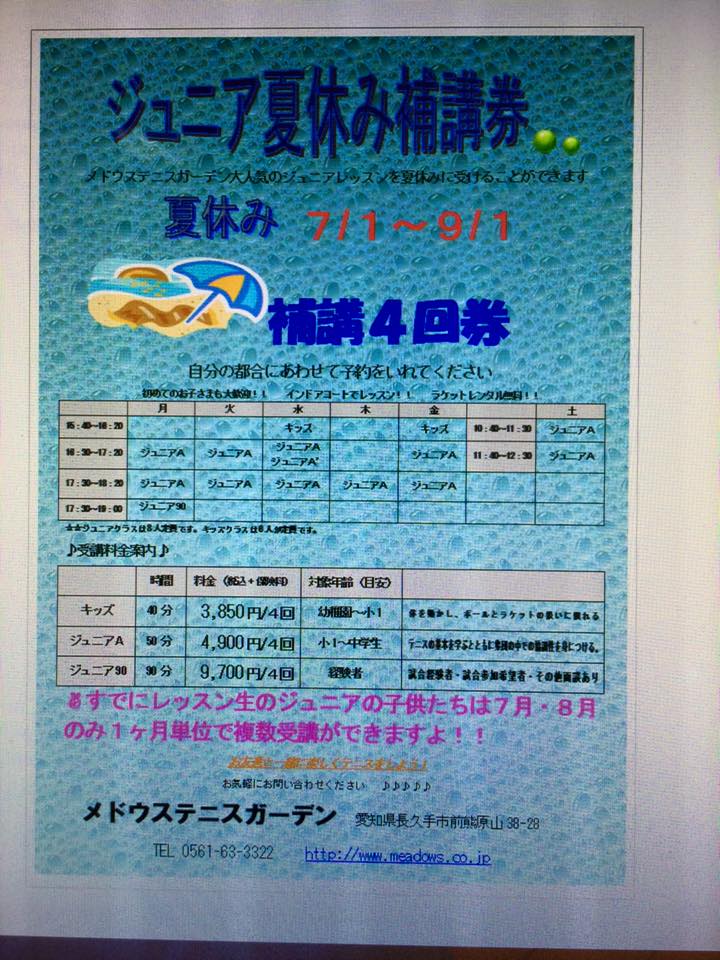 ジュニア夏休み補講券
メドウステニスガーデン大人気のジュニアレッスンを夏休みに受けることができます
夏休み 7/1~9/1
補講4回券
自分の都合にあわせて予約をいれてください
初めてのお子さまも大歓迎!! インドアコートでレッスン!! ラケットレンタル無料!!
月 火 水 木 金 土
15:40~16:20 キッズ キッズ 10:40~11:30 ジュニアA
16:30~17:20 ジュニアA ジュニアA ジュニアA ジュニアA' ジュニアA 11:40~12:30 ジュニアA
17:30~18:20 ジュニアA ジュニアA ジュニアA ジュニアA ジュニアA
17:30~19:00 ジュニア90
☆☆ジュニアクラスは8人定員です。キッズクラスは6人が定員です。
♪受講料金案内♪
時間 料金(税込+保険料) 対象年齢(目安)
キッズ 40分 3,850円/4回 幼稚園~小1 体を動かし、ボールとラケットの扱いに慣れる
ジュニアA 50分 4,900円/4回 小1~中学生 テニスの基本を学ぶとともに集団の中での協調性を身につける。
ジュニア90 90分 9,700円/4回 経験者 試合経験者・試合参加希望者・その他面談あり
すでにレッスン生のジュニアの子供たちは7月・8月
のみ1ヶ月単位で複数受講ができますよ!!
お友達と一緒に楽しくテニスをしましょう!
お気軽にお問い合わせください ♪♪♪♪♪
メドウステニスガーデン 愛知県長久手市前熊原山38-28
TEL 0561-63-3322 http://www.meadows.co.jp